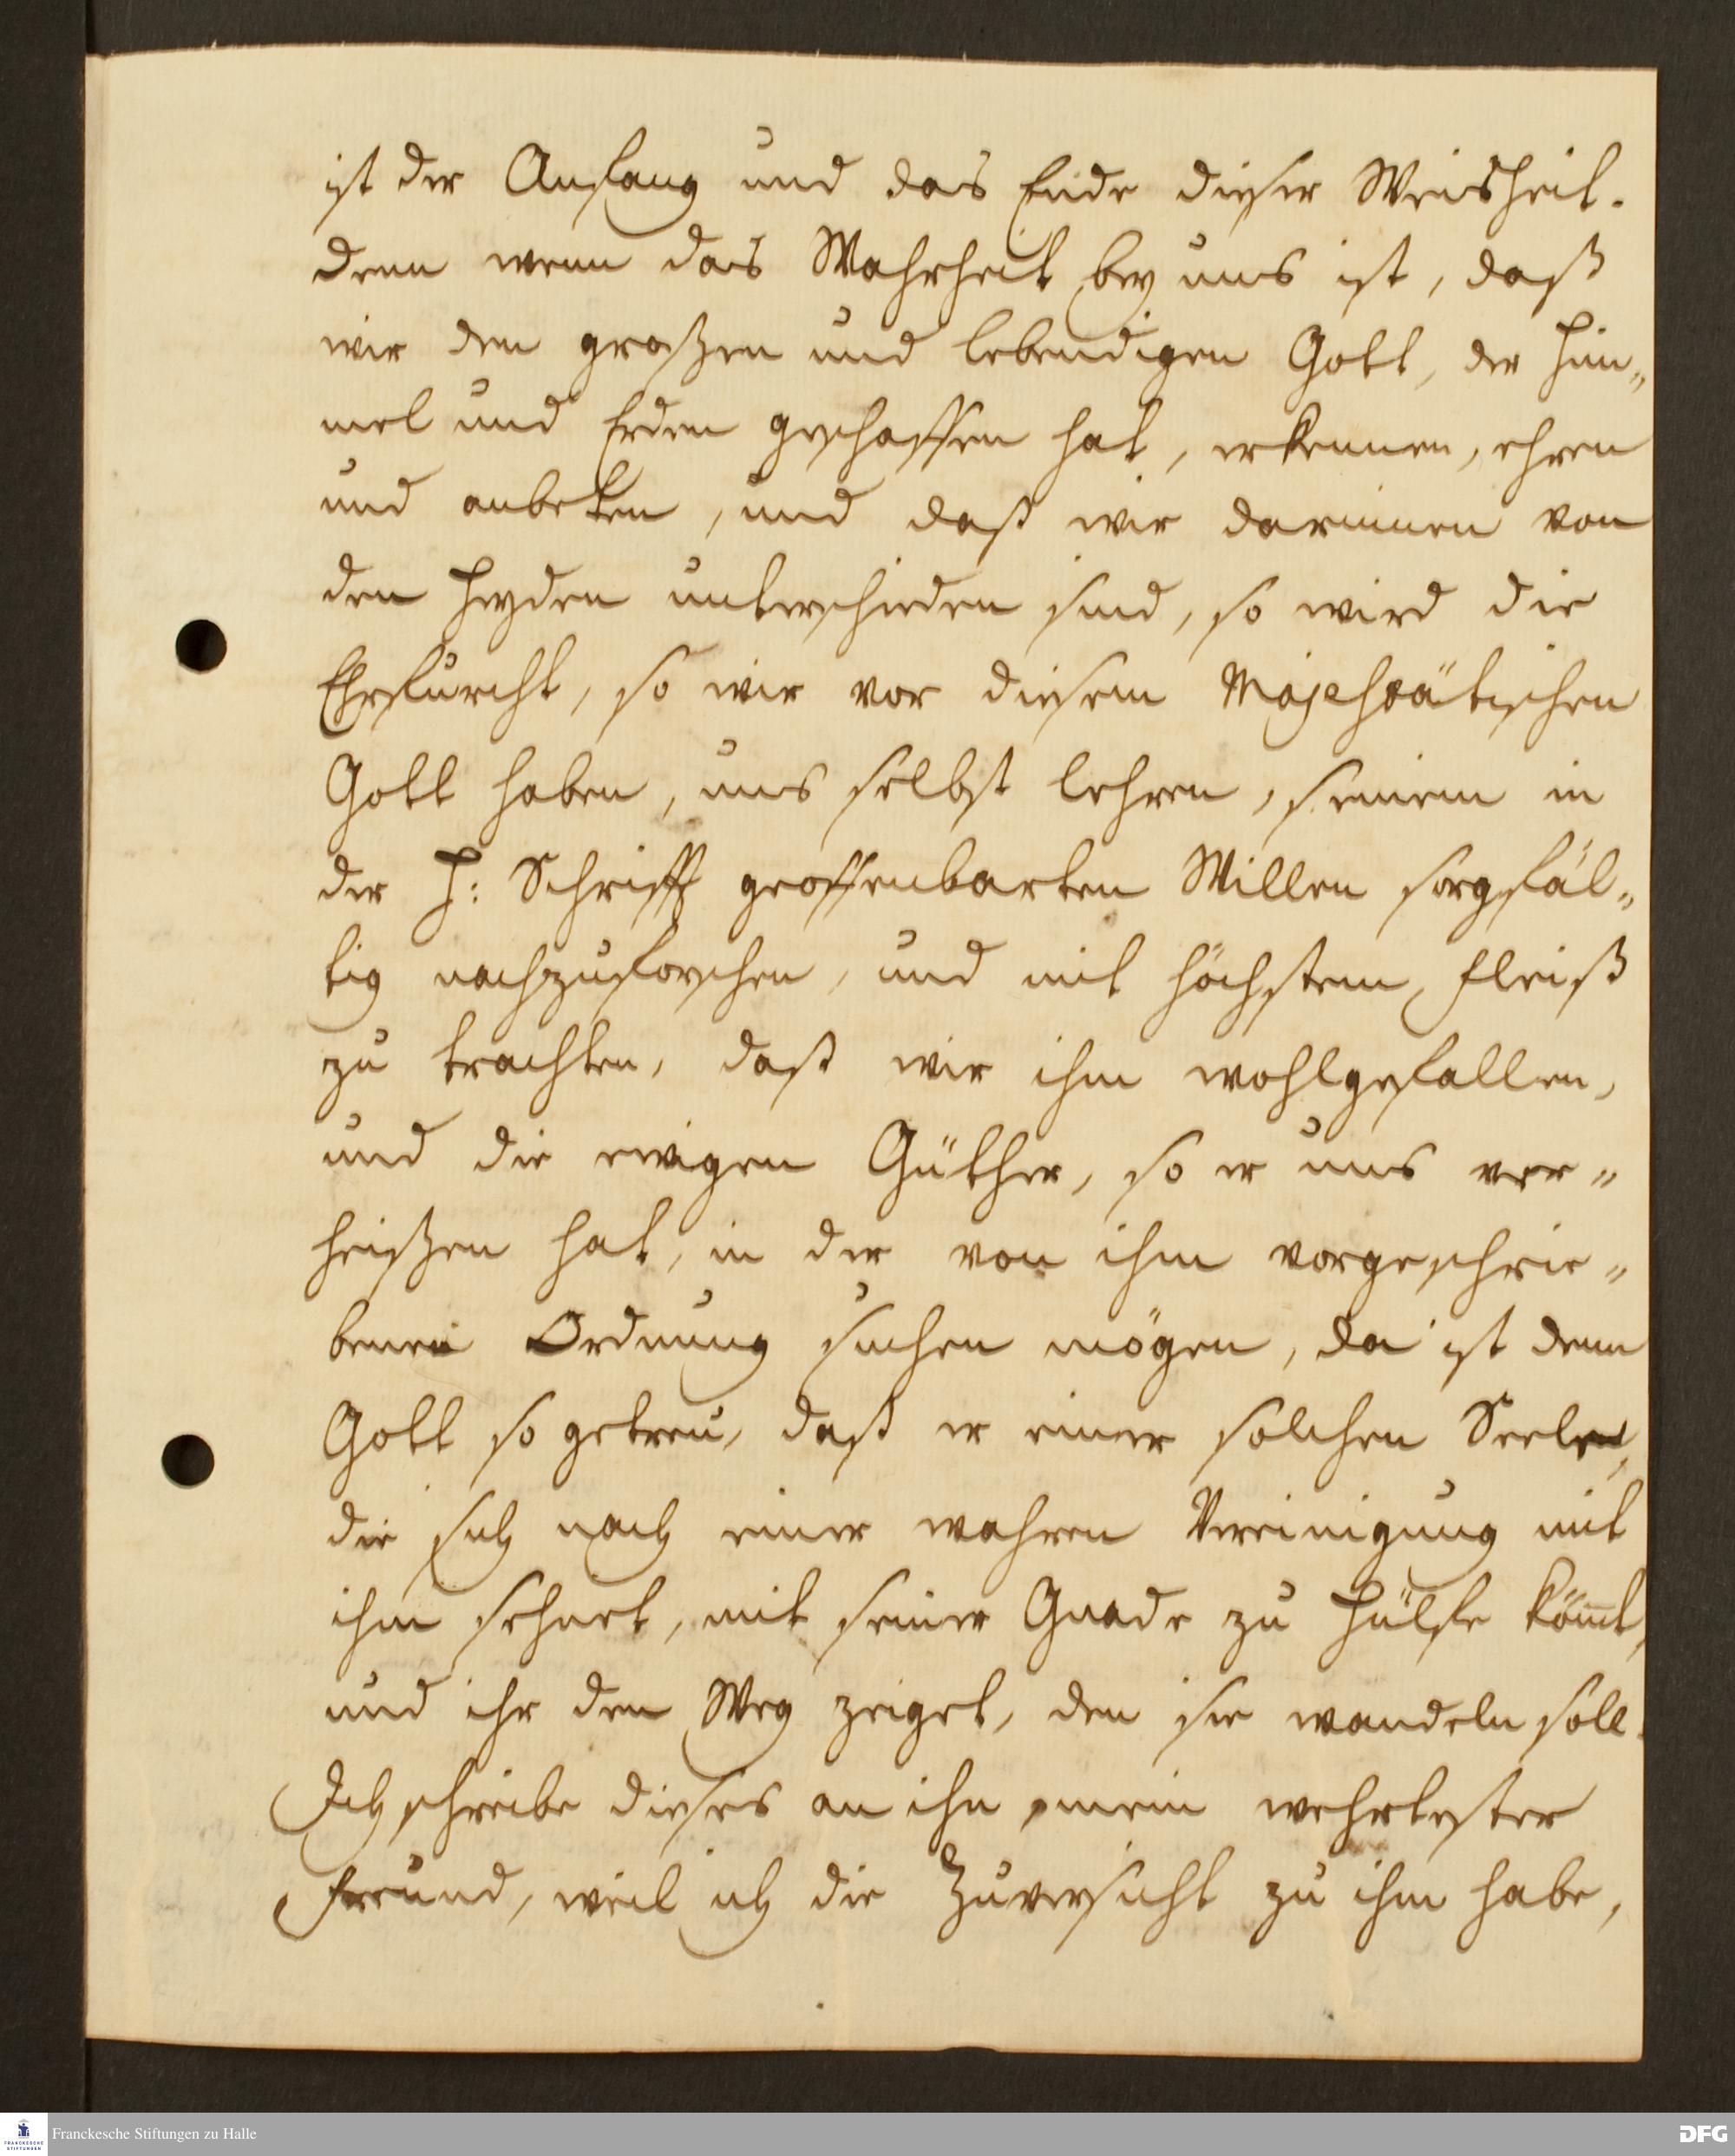 ist der Anfang und das Ende dieser Weisheit.
denn wenn das Wahrheit bey uns ist, daß
wir den großen und lebendigen Gott, der Him„
mel und Erden geschaffen hat, erkennen, ehren
und anbeten, und daß wir darinnen von
den Heyden unterschieden sind, so wird die
Ehrfurcht, so wir vor diesem Majestätischen
Gott haben, uns selbst lehren, seinem in
der H: Schrifft geoffenbarten Willen sorgfäl„
tig nachzuforschen, und mit höchstem Fleiß
zu trachten, daß wir ihm wohlgefallen,
und die ewigen Güther, so er uns ver„
heißen hat, in der von ihm vorgeschrie„
benen Ordnung suchen mögen, da ist denn
Gott so getreu, daß er einer solchen Seelen,
die sich nach einer wahren Vereinigung mit
ihm sehnet, mit seiner Gnade zu Hülfe kömt,
und ihr den Weg zeiget, den sie wandeln soll.
Ich schreibe dieses an ihn, mein wehrtester
Freund, weil ich die Zuversicht zu ihm habe,
Franckesche Stiftungen zu Halle
FRANCKESCHE
STIFTUNGEN
DFG